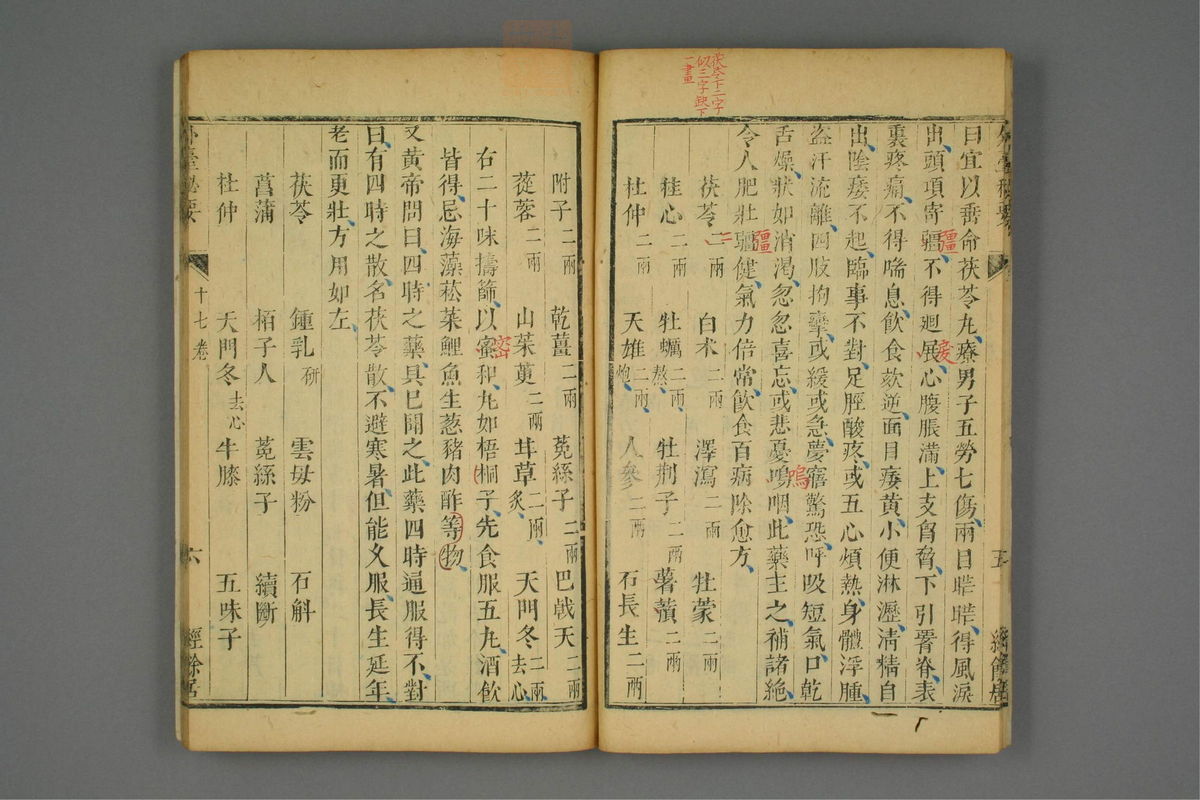 茯苓下二字
似三字缺下
一畫
曰宜以番命茯苓丸療男子五勞七傷兩目䀮䀮得風淚
出頭項寄彊不得廻展心腹脹滿上支胷脅下引膂脊表
裏疼痛不得喘息飲食欬逆面目痿黃小便淋瀝清精自
出陰痿不起臨事不對足脛酸疼或五心煩熱身體浮腫
盜汗流離四肢拘攣或緩或急夢寤驚恐呼吸短氣口乾
舌燥狀如消渴忽忽喜忘或悲憂嗚咽此藥主之補諸絶
令人肥壯彊健氣力倍常飲食百病除愈方
茯苓二兩 白术二兩 澤瀉二兩 牡蒙二兩
桂心二兩 牡蠣熬二兩 牡荆子二兩 薯蕷二兩
杜仲二兩 天雄炮二兩 人參二兩 石長生二兩
附子二兩 乾薑二兩 菟絲子二兩 巴戟天二兩
蓯蓉二兩 山茱萸二兩 甘草炙二兩 天門冬去心二兩
右二十味擣篩以蜜和丸如梧桐子先食服五丸酒飲
皆得忌海藻菘菜鯉魚生葱豬肉酢等物
又黃帝問曰四時之藥具已聞之此藥四時通服得不對
曰有四時之散名茯苓散不避寒暑但能久服長生延年
老而更壯方用如左
茯苓 鍾乳研 雲母粉 石斛
菖蒲 栢子人 菟絲子 續斷
杜仲 天門冬去心 牛膝 五味子
外臺秘要 十七卷 六 經餘居